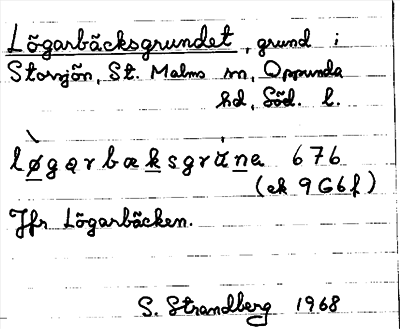 Lögarbäcksgrundet, grund i
Storsjön, St. Malms sn, Oppunda
hd, Söd. l.
lø̀garbæksgrúne 676
(ek 9G6f)
Jfr Lögarbäcken.
S. Strandberg 1968